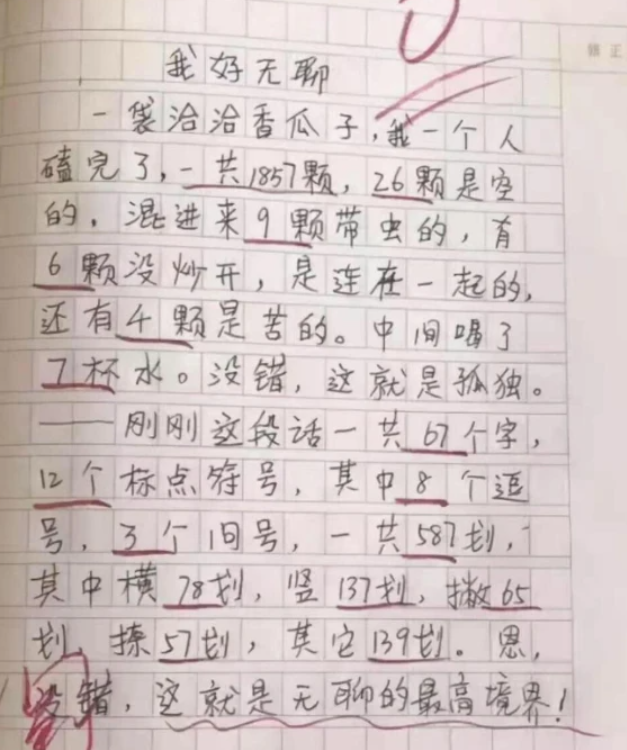 我好无聊
一袋洽洽香瓜子,我一个人
磕完了,一共1857颗,26颗是空
的,混进来9颗带虫的,有
6颗没炒开,是连在一起的,
还有4颗是苦的。中间喝了
7杯水。没错,这就是孤独。
——刚刚这段话一共67个字,
12个标点符号,其中8个逗
号,3个旧号,一共587划,
其中横78划,竖137划,撇65
划,捺57划,其它139划。恩,
没错,这就是无聊的最高境界!